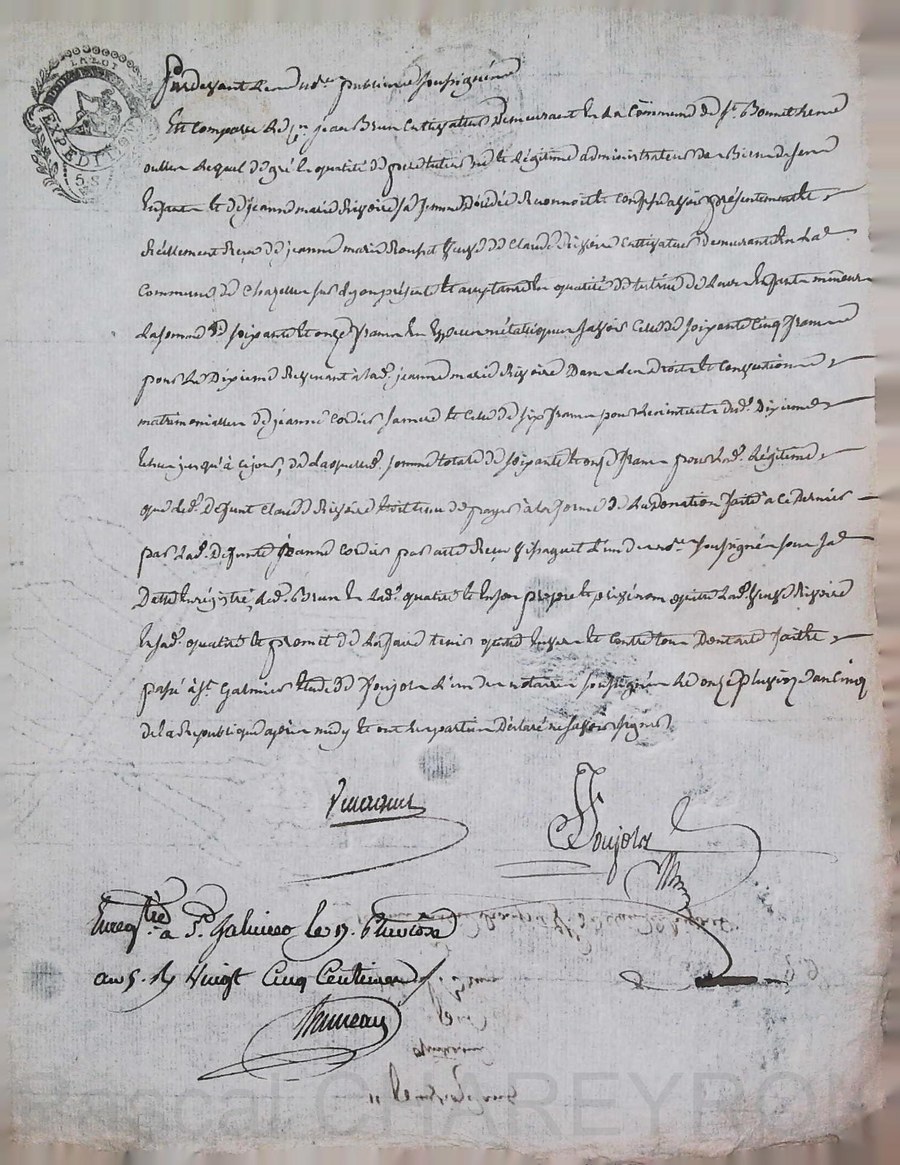 LA LOI
EXPEDITION
Pardevant les nores publics soussignés
Est comparu le Cn jean Brun Cultivateur Demeurant en la Commune de St. Bonnet les
oulles lequel de gré en qualité de légitime administrateur des Biens de ses
Enfants et de jeanne marie Rivoire sa femme Décédée Reconnoit et Confesse avoir présentement et
Réellement Reçu de jeanne marie veuve de Claude Rivoire Cultivateur Demeurante en lad.
Commune de Chazelles sur Lyon présente et acceptante en qualité de tutrice de leurs Enfants mineurs
La somme de soixante et onze francs en Espèces métalliques savoir Celle de soixante Cinq francs
pour le Dixieme Revenant à lad. jeanne marie Rivoire Dans les Droits et Conventions
matrimoniales de jeanne Cordier sa mere et Celle de six francs pour les interets dud. Dixieme
Echus jusqu'à Ce jour, de laquelle somme totale de soixante et onze francs pour lad. légitime
que led. Défunt Claude Rivoire étoit tenu de payer à la forme de la Donation faite à ce dernier
par lad. Défunte jeanne Cordier par acte Reçu l'un des nores soussignés sous sa
Datte Enregistré, led. Brun en lad. qualité et En son propre et privé nom quitte lad. veuve Rivoire
En sad. qualité et promet de la faire tenir quitte Envers et Contre tous Dont acte fait et
passé à St. Galmier Etude de Poujola l'un des notaires soussignés le onze pluviose an Cinq
de la Republique après midy et ont les parties Déclaré ne savoir signer
Poujola
Enregtré à St. Galmier le 17. Pluviose
an 5. Ry Vingt Cinq Centimes
Pascal CHAREYRON